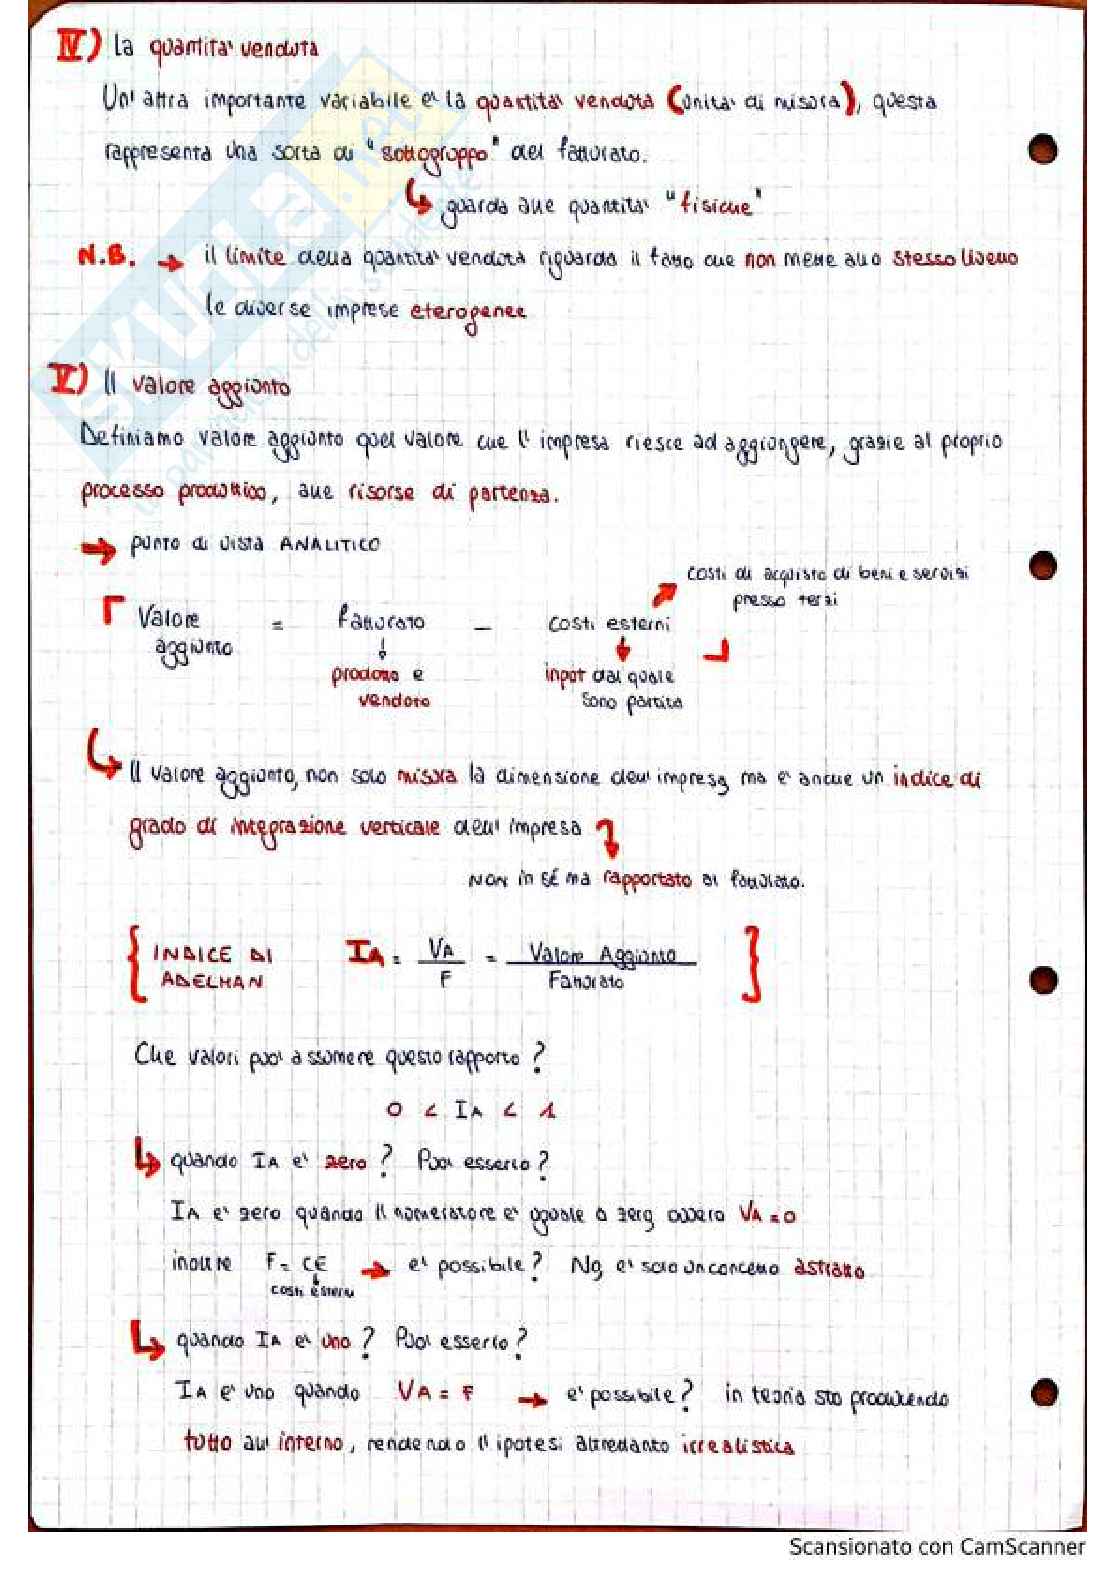 IV) La quantita' venduta
Un' altra importante variabile e' la quantita' venduta (unita' di misura), questa
rappresenta una sorta di "sottogruppo" del fatturato.
guarda alle quantita' "fisiche"
N.B. → il limite della quantita' venduta riguarda il fatto che non mette allo stesso livello
le diverse imprese eterogenee
V) Il valore aggiunto
Definiamo valore aggiunto quel valore che l' impresa riesce ad aggiungere, grazie al proprio
processo produttivo, alle risorse di partenza.
→ punto di vista ANALITICO
costi di acquisto di beni e servizi
presso terzi
Valore = fatturato – costi esterni
aggiunto ↓ ↓
prodotto e input dal quale
venduto sono partita
Il valore aggiunto, non solo misura la dimensione dell' impresa, ma e' anche un indice di
grado di integrazione verticale dell' impresa
NON in sé ma rapportato al fatturato.
{ INDICE DI ADELMAN IA = VA / F = Valore Aggiunto / Fatturato ]
Che valori puo' assumere questo rapporto?
0 < IA < 1
quando IA e' zero? Puo' esserlo?
IA e' zero quando il numeratore e' uguale a zero, ovvero VA = 0
inoltre F = CE → e' possibile? No, e' solo un concetto astratto
costi esterni
quando IA e' uno? Puo' esserlo?
IA e' uno quando VA = F → e' possibile? in teoria sto producendo
tutto all' interno, rendendo l' ipotesi altrettanto irrealistica
SKUOLA.net
Scansionato con CamScanner